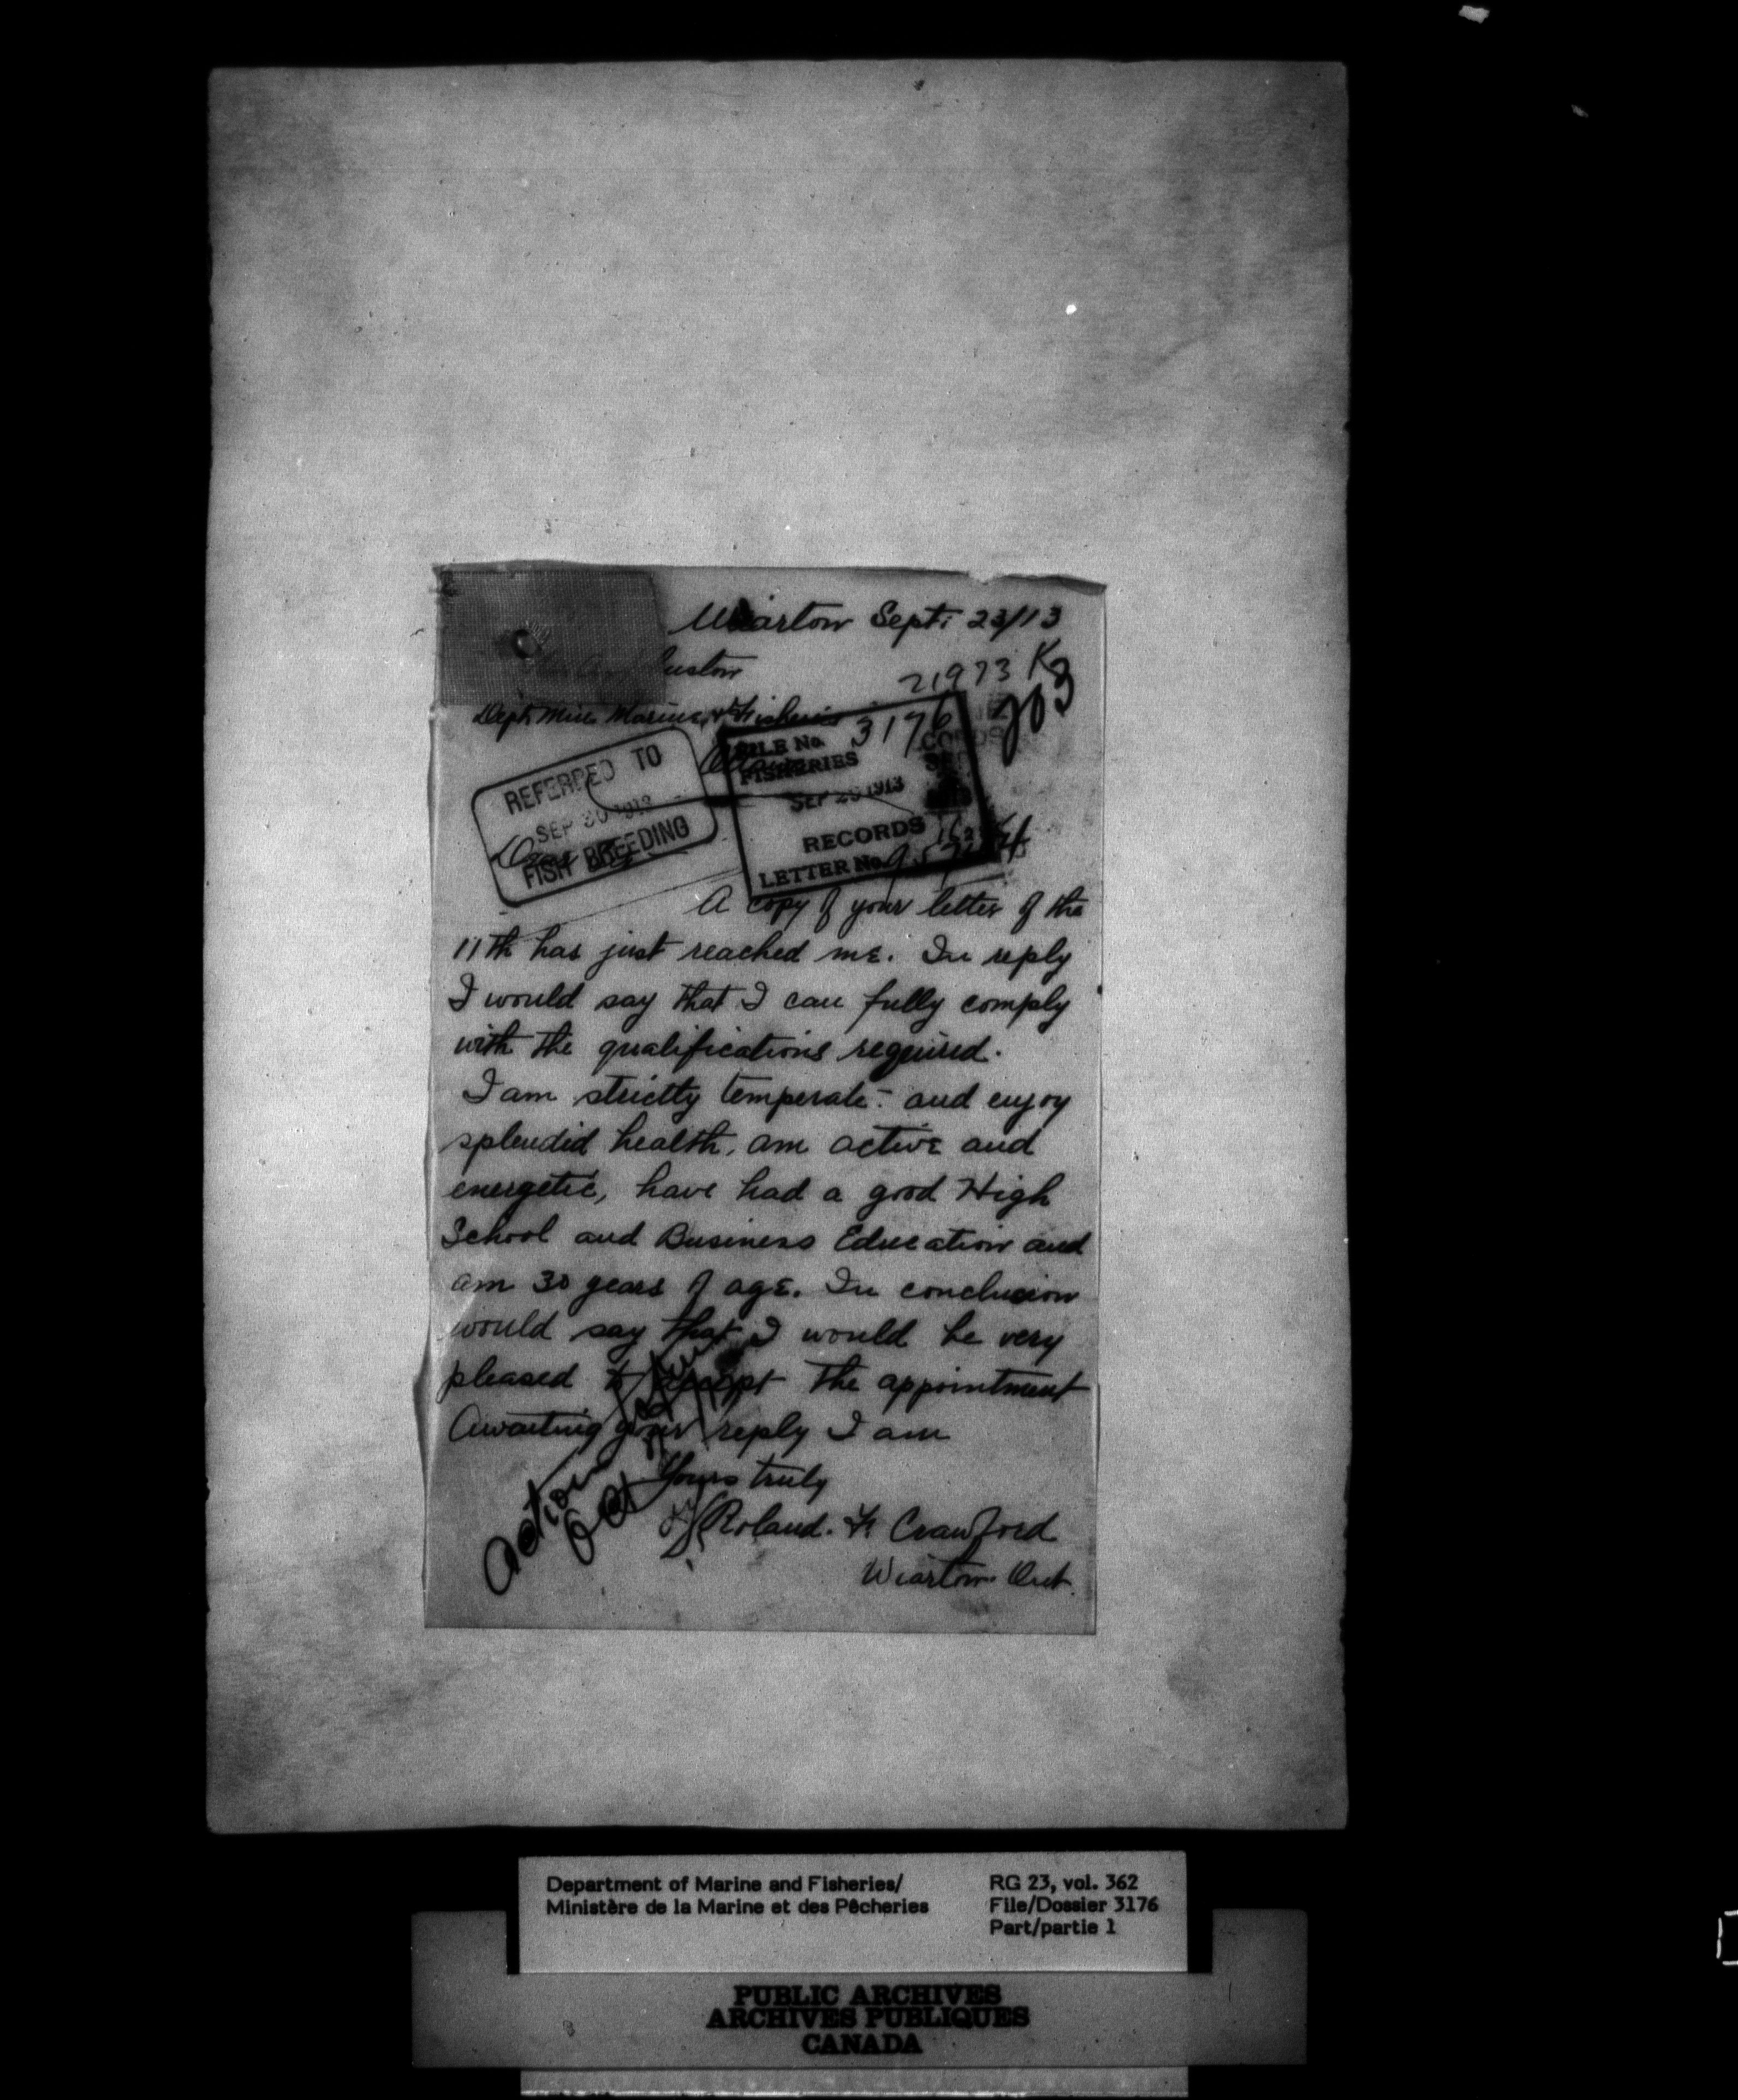 Wiarton Sept. 23/13
21973 K
Dept. Min. Marine & Fisheries
Ottawa
203
FILE No. 3176
FISHERIES
SEP 29 1913
RECORDS
LETTER No.
REFERRED TO
SEP 30 1913
FISH BREEDING
Dear Sir
A copy of your letter of the
11th has just reached me. In reply
I would say that I can fully comply
with the qualifications required.
I am strictly temperate - and enjoy
splendid health, am active and
energetic, have had a good High
School and Business Education and
am 30 years of age. In conclusion
would say that I would be very
pleased to accept the appointment
Awaiting your reply I am
Yours truly
Roland. H Crawford
Wiarton Ont.
Action
Department of Marine and Fisheries/
Ministère de la Marine et des Pêcheries
RG 23, vol. 362
File/Dossier 3176
Part/partie 1
PUBLIC ARCHIVES
ARCHIVES PUBLIQUES
CANADA